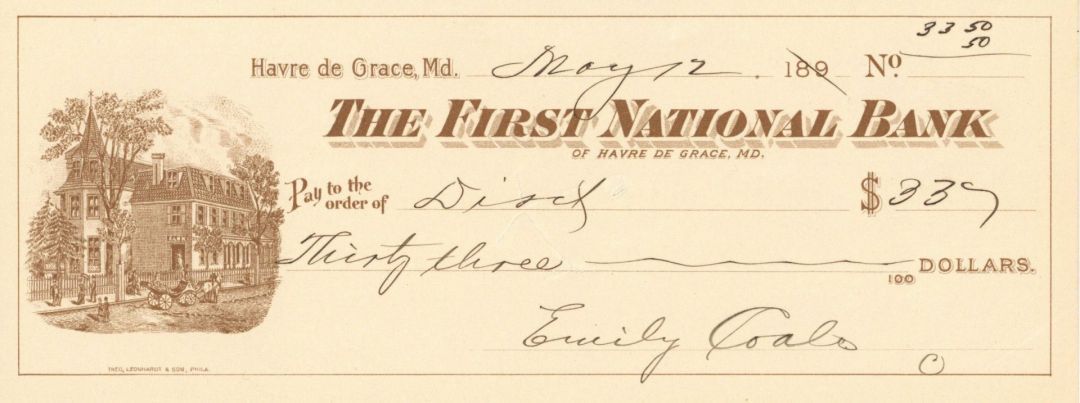 33 50
50
Havre de Grace, Md. May 12 . 189 No.
THE FIRST NATIONAL BANK
OF HAVRE DE GRACE, MD.
Pay to the order of Disct $ 33
Thirty three 100 DOLLARS.
Emily Coale
THEO. LEONHARDT & SON, PHILA.